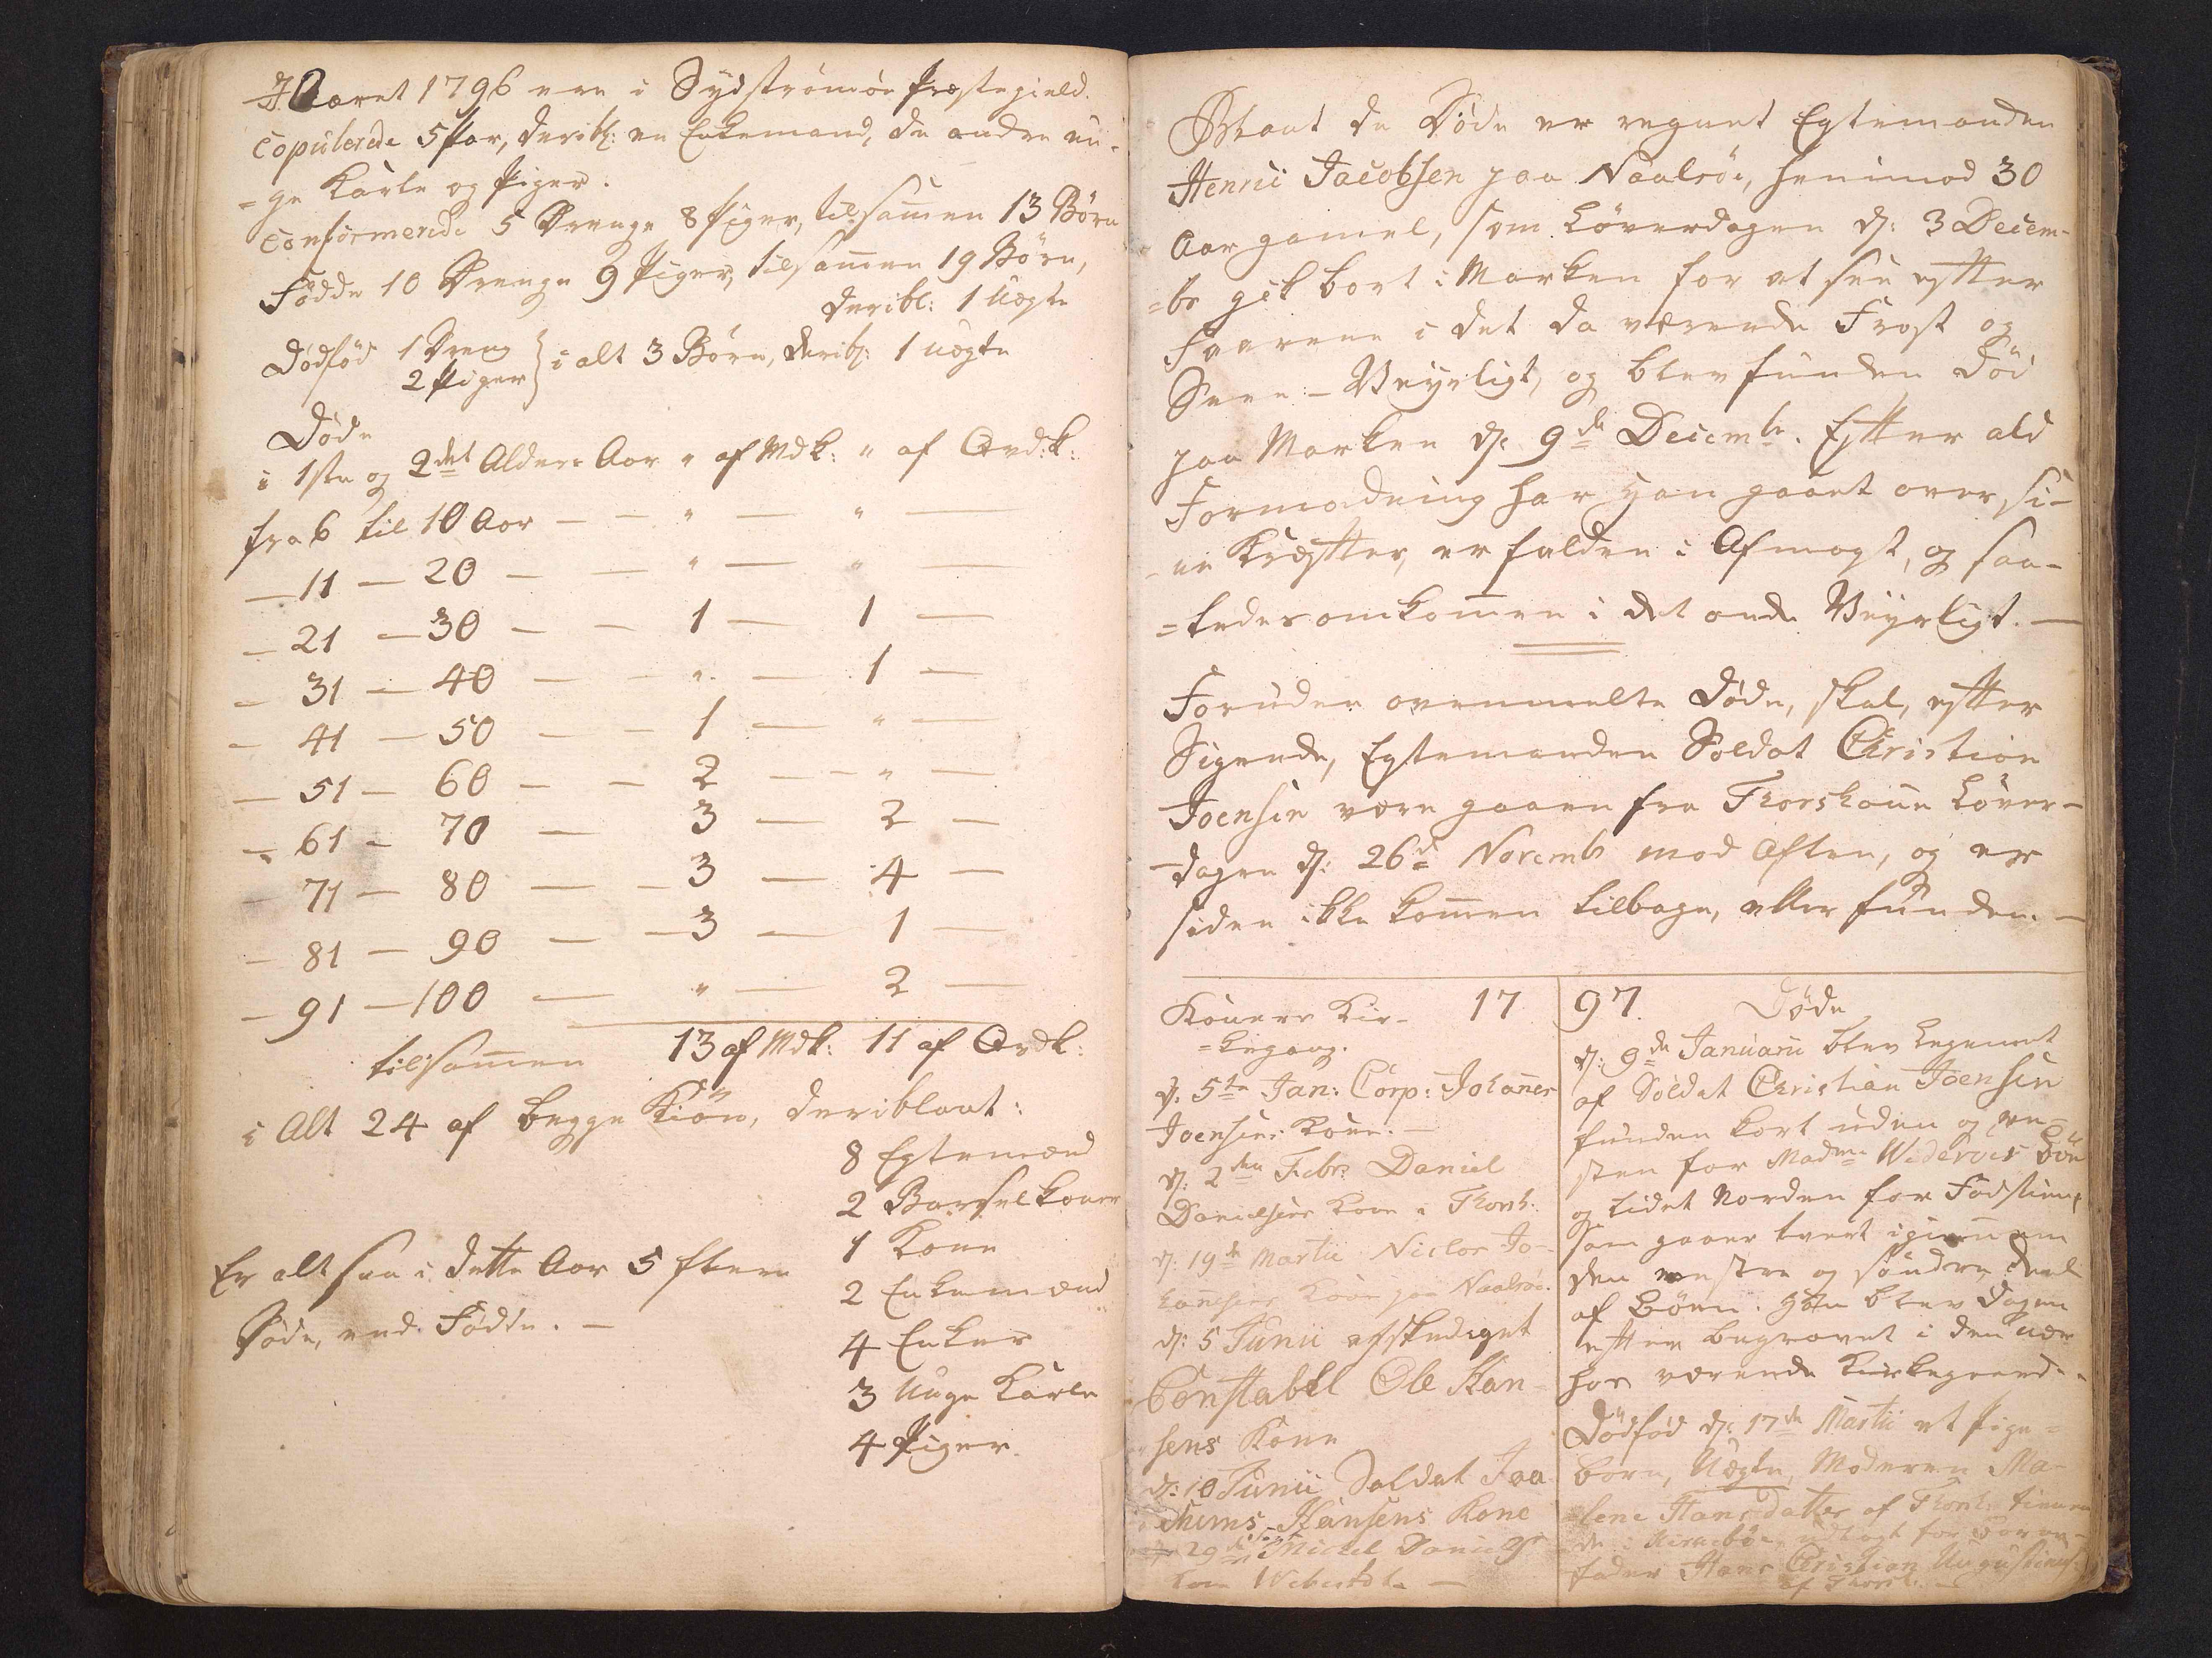 I Aaret 1796 ere i Sydströmöe Præstegield.
Copulerede 5 Par, deribl: en Enkemand, de andre un-
=ge Karle og Piger.
Confirmerede 5 Drenge 8 Piger, tilsam̄en 13 Börn
Födde 10 Drenge 9 Piger, tilsam̄en 19 Börn,
deribl: 1 uægte
Dödfød 1 Dreng
2 Piger } i alt 3 Börn, deribl: 1 uægte
Döde
i 1ste og 2det Alders Aar " af Mdk: " af Qvdk:
fra 6 til 10 Aar — — " — " —
— 11 — 20 — — " — " —
— 21 — 30 — — 1 — 1 —
— 31 — 40 — — " — 1 —
— 41 — 50 — — 1 — " —
— 51 — 60 — — 2 — — " —
— 61 — 70 — 3 — 2 —
— 71 — 80 — — 3 — 4 —
— 81 — 90 — — 3 — 1 —
— 91 — 100 — " — 2 —
tilsam̄en 13 af Mdk: 11 af Qvdk:
i Alt 24 af begge Kiön, deriblant:
8 Egtemænd
2 Barselkoner
1 Kone
2 Enkemænd
4 Enker
3 Unge Karle
4 Piger.
Er alt saa i dette Aar 5 flere
Döde, end Födde. —
Blant de Döde er regnet Egtemanden
Henric Jacobsen paa Naalsöe, henimod 30
Aar gamel, som Löverdagen d: 3 Decem-
=br gik bort i Marken for at see efter
Faarene i det da værende Frost og
Snee-Veyrligt, og blev funden död
paa Marken d: 9de Decembr. Efter ald
Formodning har han gaaet over si-
-ne Kræfter, er falden i Afmagt, og saa-
=ledes omkom̄en i det onde Veyrligt. —
Foruden ovenmelte Döde, skal, efter
Sigende, Egtemanden Soldat Christian
Joensen være gaaen fra Thorshavn Löver-
-dagen d: 26de Novembr mod Aften, og er
siden ikke kom̄en tilbage, eller funden. —
Koners Kir-
=kegang.
17
d. 5te Jan: Corp: Johan̄es
Joensens Kone. —
d: 2den Febr: Daniel
Danielsens Kone i Thorsh:
d: 19de Martii Niclas Jo-
han̄esens Kone paa Naalsöe.
d: 5 Junii afskediget
Constabel Ole Han-
sens Kone
d: 10 Junii Soldat Joa-
chims Hansens Kone
29de Michel Daniels
Kone
97. Döde
d: 9de Januarii blev Legemet
af Soldat Christian Joensen
funden kort uden og ve-
sten for Madme Böe
og lidet Norden for Fodstien,
som gaaer tvert igien̄em
den venstre og söndre Deel
af Böen. Han blev Dagen
efter begravet i den nær
hos værende Kirkegaard.
Dödfød d: 17de Martii et Pige-
barn, Uægte, Moderen Ma-
=lene Hansdatter af Thorsh: tienen-
de i Kirkeböe, udlagt for Barne-
fader Hans Christian Augustinus
af Thorsh: